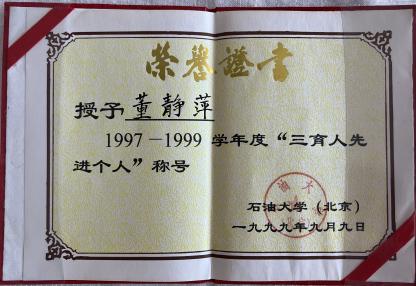 榮譽證書
授予董静萍
1997－1999 学年度“三育人先
进个人”称号
石油大学（北京）
一九九九年九月九日